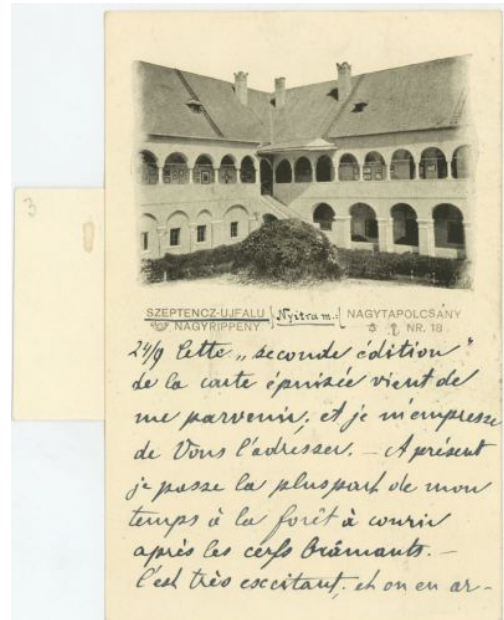 3
SZEPTENCZ-UJFALU
NAGYRIPPÉNY
(Nyitra m.:)
NAGYTAPOLCSÁNY
NR. 18
24/9 Cette „seconde édition"
de la carte épuisée vient de
me parvenir, et je m'empresse
de Vous l'adresser. — A présent
je passe la pluspart de mon
temps à la forêt à courir
après les cerfs brâmants. —
C'est très excitant, et on en ar-